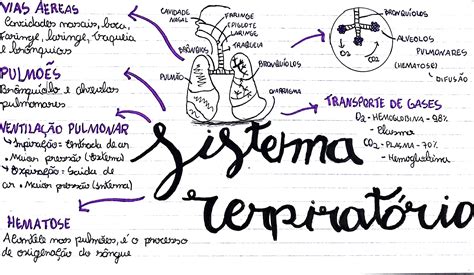 VIAS AÉREAS
Cavidades nasais, boca,
faringe, laringe, traqueia
e brônquios
PULMÕES
Bronquíolo e alvéolos
pulmonares
VENTILAÇÃO PULMONAR
Inspiração: Entrada de
ar. Maior pressão (Externa)
Expiração: Saída de
ar. Maior pressão (Interna)
HEMATOSE
Acontece nos pulmões, é o processo
de oxigenação do sangue
CAVIDADE
NASAL
FARINGE
EPIGLOTE
LARINGE
TRAQUEIA
BRÔNQUIOS
BRONQUÍOLOS
PULMÃO
DIAFRAGMA
BRONQUÍOLOS
ALVÉOLOS
PULMONARES
(HEMATOSE)
DIFUSÃO
O2
CO2
TRANSPORTE DE GASES
O2 - HEMOGLOBINA - 98%
- Plasma
CO2 - PLASMA - 70%
- Hemoglobina
Sistema
respiratório